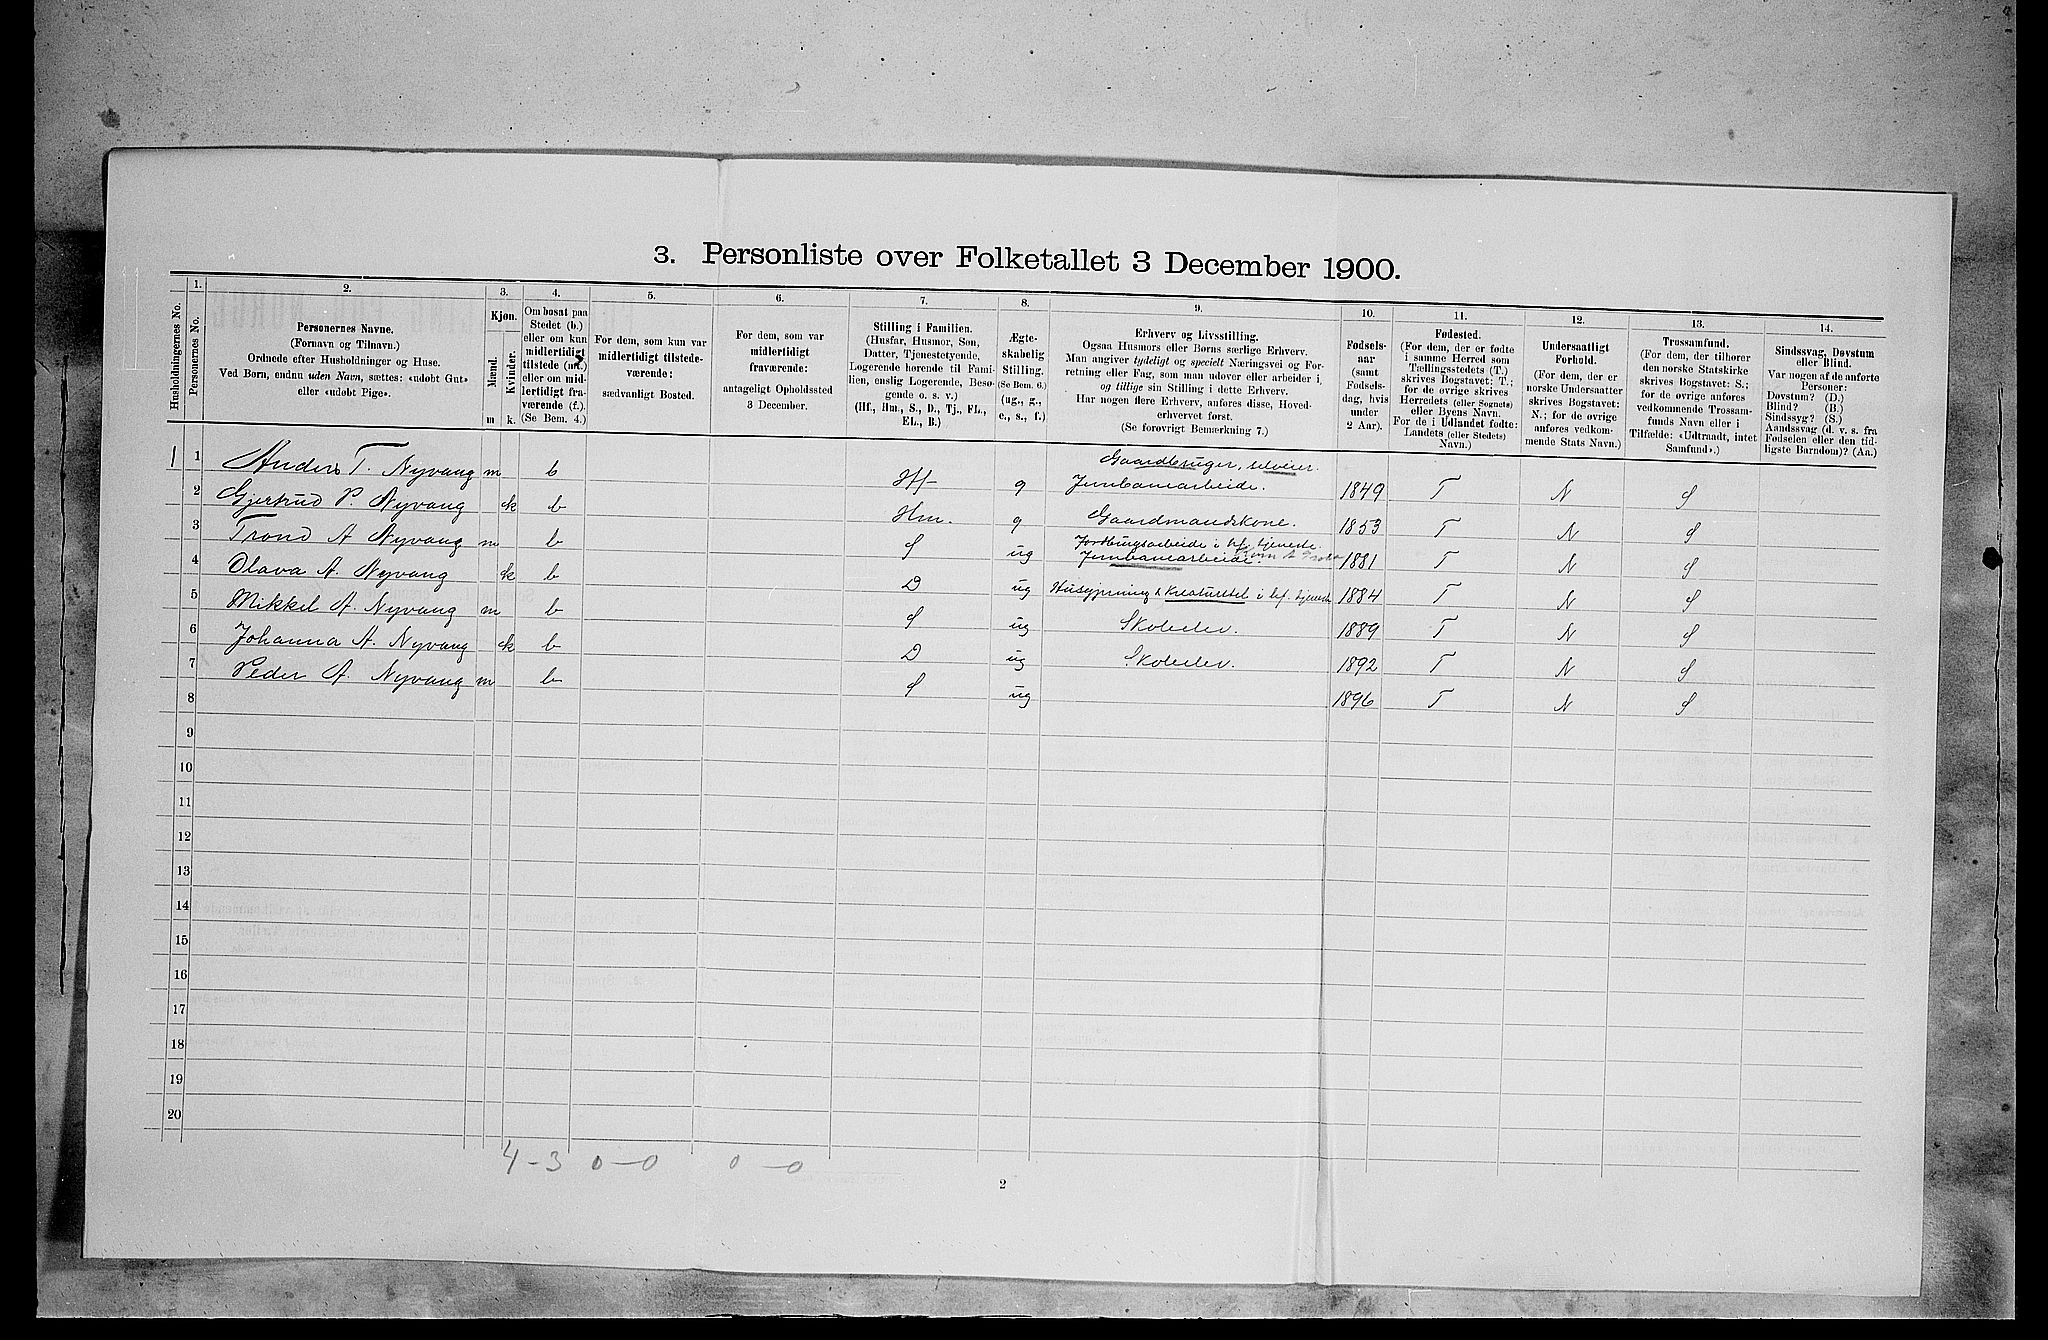 3. Personliste over Folketallet 3 December 1900.
Husholdningernes No.
1.
Personernes No.
2.
Personernes Navne.
(Fornavn og Tilnavn.)
Ordnede efter Husholdninger og Huse.
Ved Børn, endnu uden Navn, sættes: «udøbt Gut»
eller «udøbt Pige».
3.
Kjøn.
Mænd.
Kvinder.
m k.
4.
Om bosat paa
Stedet (b.)
eller om kun
midlertidigt
tilstede (mt.)
eller om mid-
lertidigt fra-
værende (f.).
(Se Bem. 4.)
5.
For dem, som kun var
midlertidigt tilstede-
værende:
sædvanligt Bosted.
6.
For dem, som var
midlertidigt
fraværende:
antageligt Opholdssted
3 December.
7.
Stilling i Familien.
(Husfar, Husmor, Søn,
Datter, Tjenestetyende,
Logerende hørende til Fami-
lien, enslig Logerende, Besø-
gende o. s. v.)
(Hf., Hm., S., D., Tj., FL.,
EL., B.)
8.
Ægte-
skabelig
Stilling.
(Se Bem. 6.)
(ug., g.,
e., s., f.)
9.
Erhverv og Livsstilling.
Ogsaa Husmors eller Børns særlige Erhverv.
Man angiver tydeligt og specielt Næringsvei og For-
retning eller Fag, som man udøver eller arbeider i,
og tillige sin Stilling i dette Erhverv.
Har nogen flere Erhverv, anføres disse, Hoved-
erhvervet først.
(Se forøvrigt Bemærkning 7.)
10.
Fødsels-
aar
(samt
Fødsels-
dag, hvis
under
2 Aar).
11.
Fødested.
(For dem, der er fødte
i samme Herred som
Tællingsstedets (T.)
skrives Bogstavet: T.;
for de øvrige skrives
Herredets (eller Sognets)
eller Byens Navn.
For de i Udlandet fødte:
Landets (eller Stedets)
Navn.)
12.
Undersaatligt
Forhold.
(For dem, der er
norske Undersaatter
skrives Bogstavet:
N.; for de øvrige
anføres vedkom-
mende Stats Navn.)
13.
Trossamfund.
(For dem, der tilhører
den norske Statskirke
skrives Bogstavet: S.;
for de øvrige anføres
vedkommende Trossam-
funds Navn eller i
Tilfælde: «Udtraadt, intet
Samfund».)
14.
Sindssvag, Døvstum
eller Blind.
Var nogen af de anførte
Personer:
Døvstum? (D.)
Blind? (B.)
Sindssyg? (S.)
Aandssvag (d. v. s. fra
Fødselen eller den tid-
ligste Barndom)? (Aa.)
1 1 Anders T. Nyvang m b Hf g Gaardbruger, selveier. Jernbanearbeide. 1849 T N S
2 Gjertrud P. Nyvang k b Hm. g Gaardmandskone. 1853 T N S
3 Trond A Nyvang m b S ug Jordbrugsarbeide i hf. tjeneste. Jernbanearbeide. 1881 T N S
4 Olava A. Nyvang k b D ug Husgjerning & Kreaturstel i hf. tjeneste 1884 T N S
5 Mikkel A. Nyvang m b S ug Skoleelev. 1889 T N S
6 Johanna A. Nyvang k b D ug Skoleelev. 1892 T N S
7 Peder A. Nyvang m b S ug 1896 T N S
8
9
10
11
12
13
14
15
16
17
18
19
20
4 - 3 0 - 0 0 - 0
2